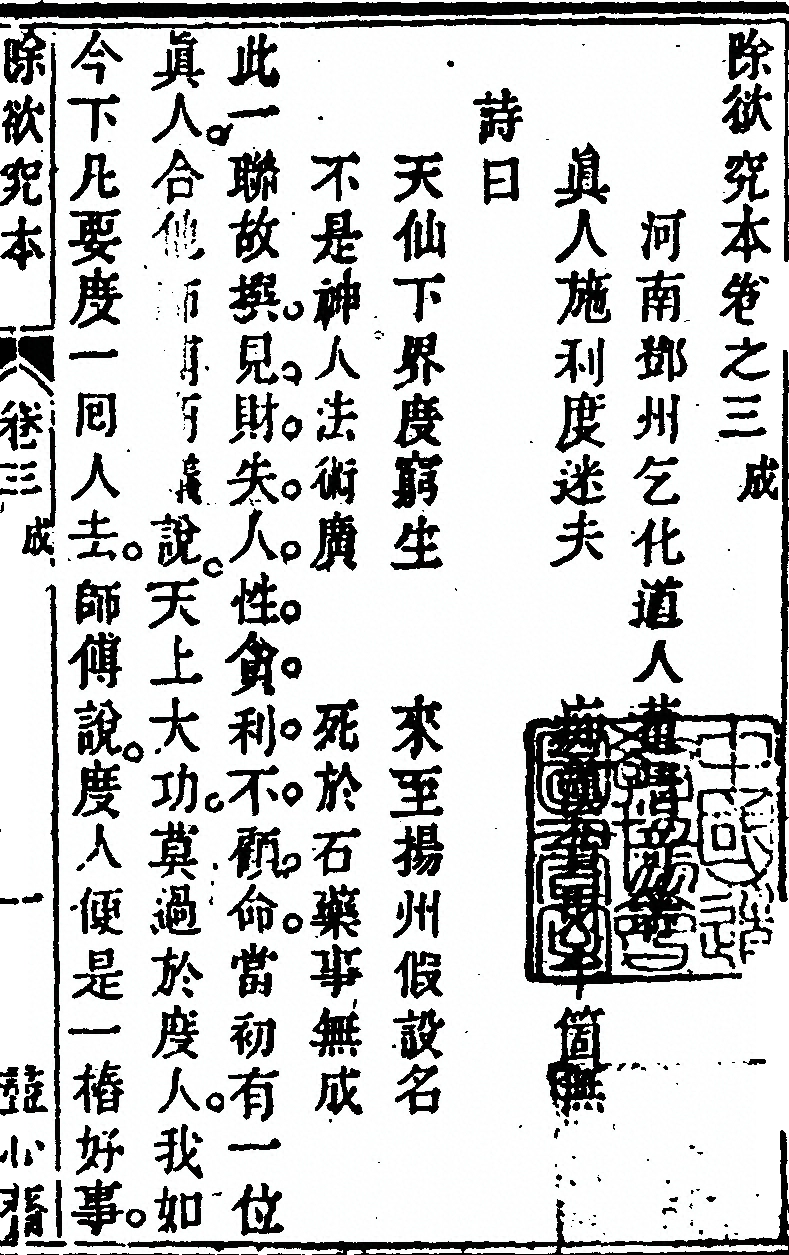 除欲究本卷之三 成
河南鄧州乞化道人董清
眞人施利度迷夫 箇無
詩曰
天仙下界度窮生 來至揚州假設名
不是神人法術廣 死於石藥事無成
此一聯故撰見財失人性貪利不顧命當初有一位
眞人合他師 說天上大功莫過於度人我如
今下凡要度一囘人去師傅說度人便是一樁好事
除欲究本 卷三 成 一